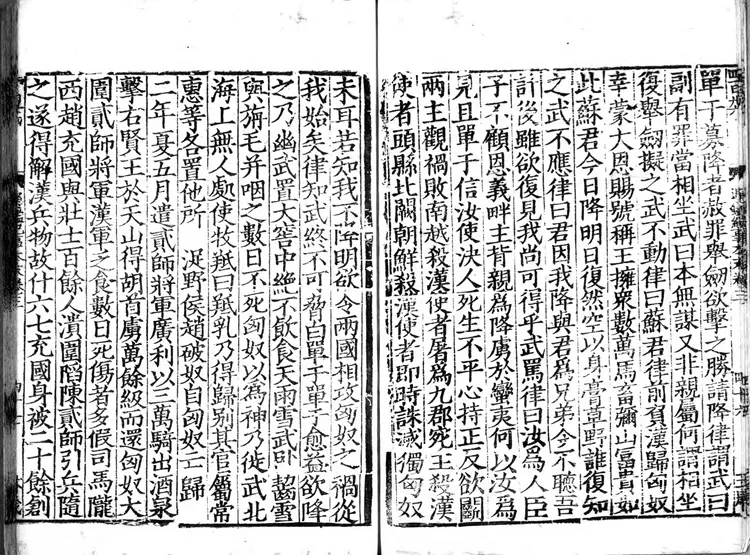 單于募降者赦罪舉劒欲擊之勝請降律謂武曰
副有罪當相坐武曰本無謀又非親屬何謂相坐
復舉劒擬之武不動律曰蘇君律前負漢歸匈奴
幸蒙大恩賜號稱王擁衆數萬馬畜彌山富貴如
此蘇君今日降明日復然空以身膏草野誰復知
之武不應律曰君因我降與君爲兄弟今不聽吾
計後雖欲復見我尚可得乎武罵律曰汝爲人臣
子不顧恩義畔主背親爲降虜於蠻夷何以汝爲
見且單于信汝使決人死生不平心持正反欲鬭
兩主觀禍敗南越殺漢使者屠爲九郡宛王殺漢
使者頭縣北闕朝鮮殺漢使者即時誅滅獨匈奴
未耳若知我不降明欲令兩國相攻匈奴之禍從
我始矣律知武終不可脅白單于單于愈益欲降
之乃幽武置大窖中絶不飲食天雨雪武卧齧雪
與旃毛并咽之數日不死匈奴以爲神乃徙武北
海上無人處使牧羝曰羝乳乃得歸别其官屬常
惠等各置他所 浞野侯趙破奴自匈奴亡歸
二年夏五月遣貳師將軍廣利以三萬騎出酒泉
擊右賢王於天山得胡首虜萬餘級而還匈奴大
圍貳師將軍漢軍乏食數日死傷者多假司馬隴
西趙充國與壯士百餘人潰圍陷陳貳師引兵隨
之遂得解漢兵物故什六七充國身被二十餘創